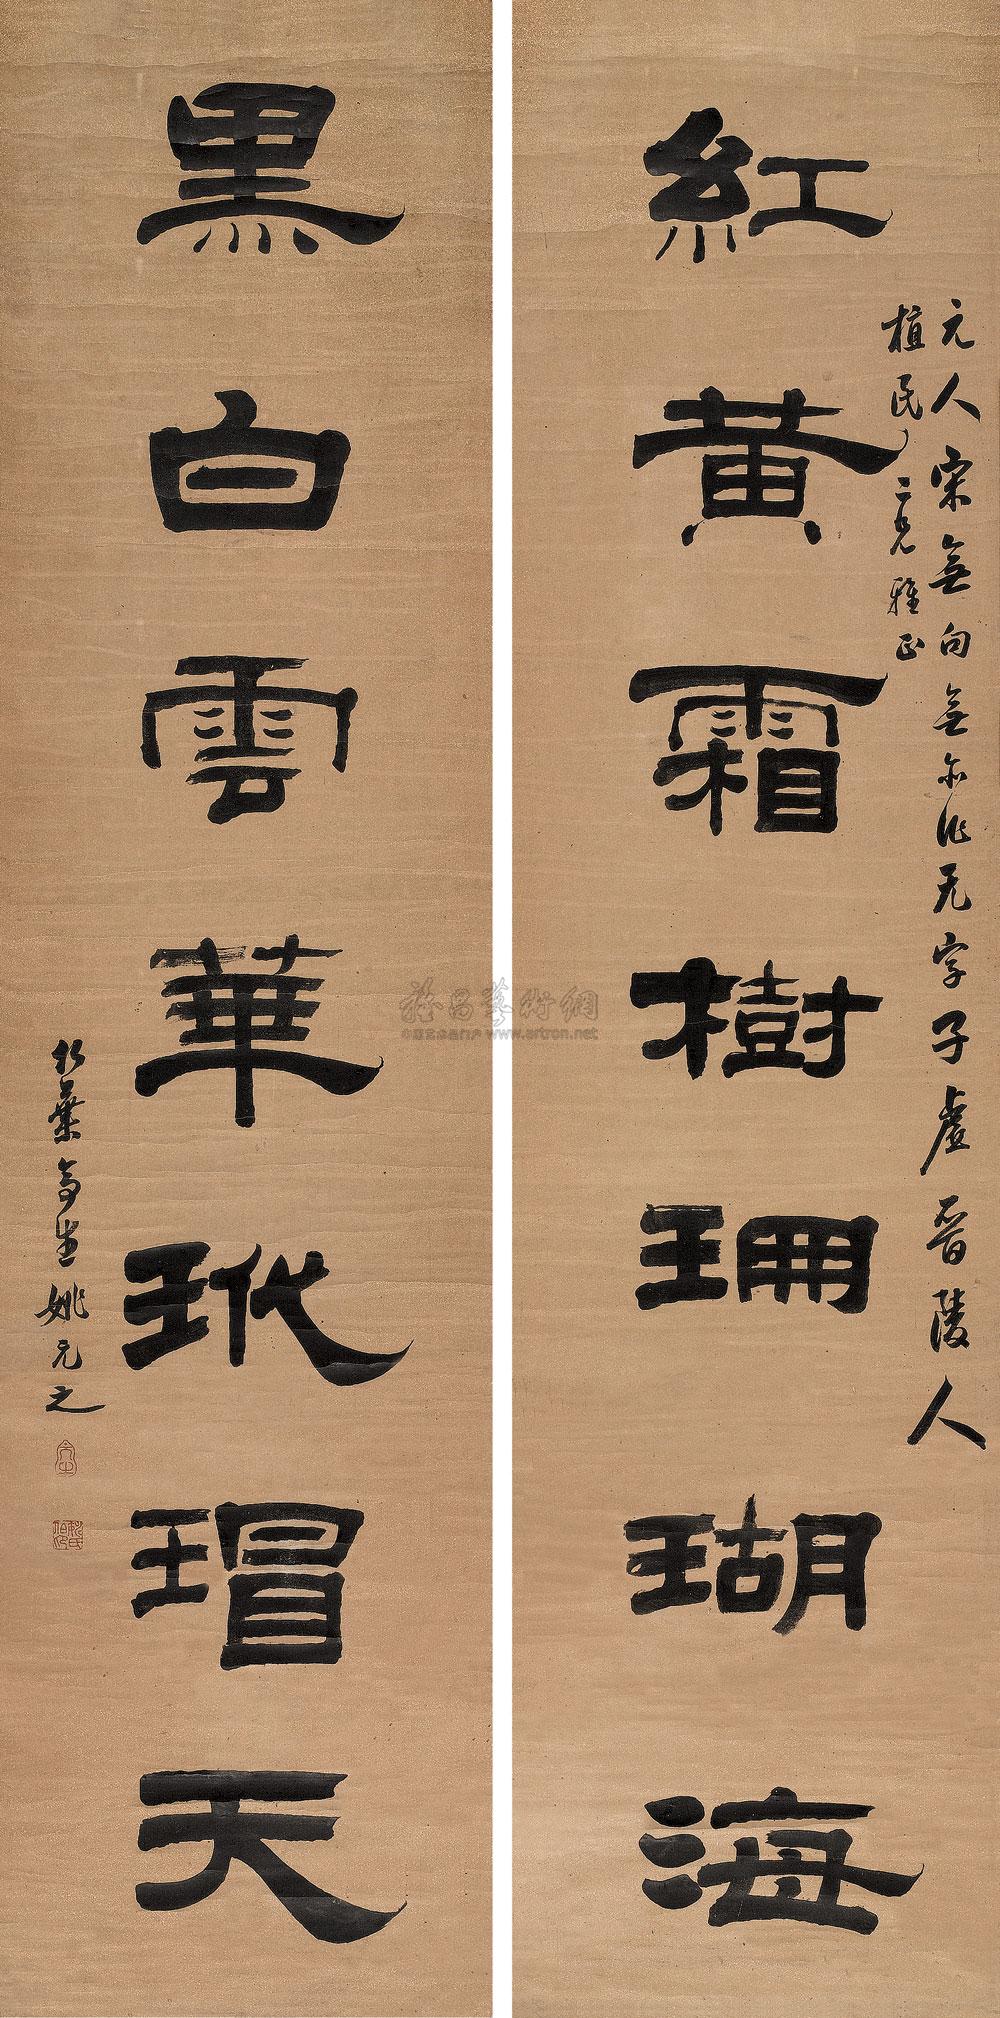 紅黄霜樹珊瑚海
元人宋無句無亦作无字子虚晋陵人
植民二兄雅正
黑白雲華玳瑁天
竹葉亭生姚元之
www.artron.net